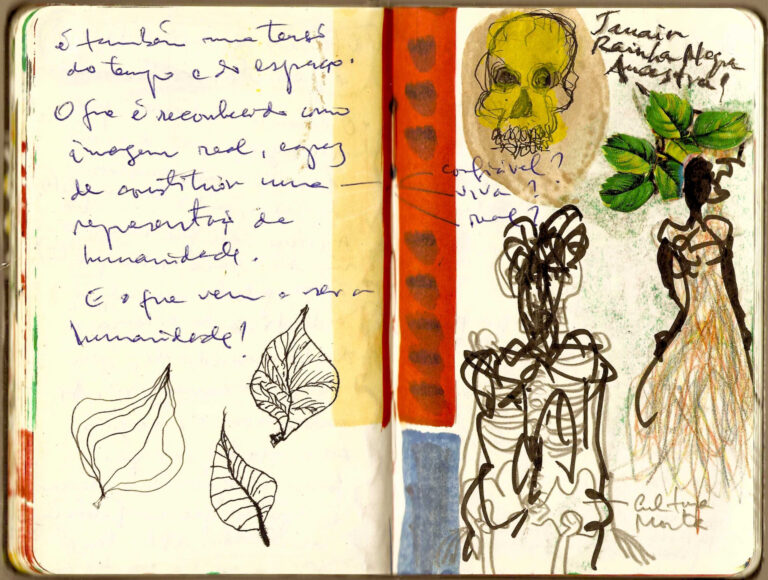 é também uma tensão
do tempo e do espaço.
O que é reconhecido como
imagem real, capaz
de constituir uma
representação de
humanidade.
E o que vem a ser a
humanidade!
confiável?
viva?
real?
Rainha Negra
Ancestral
Cultura
Morta